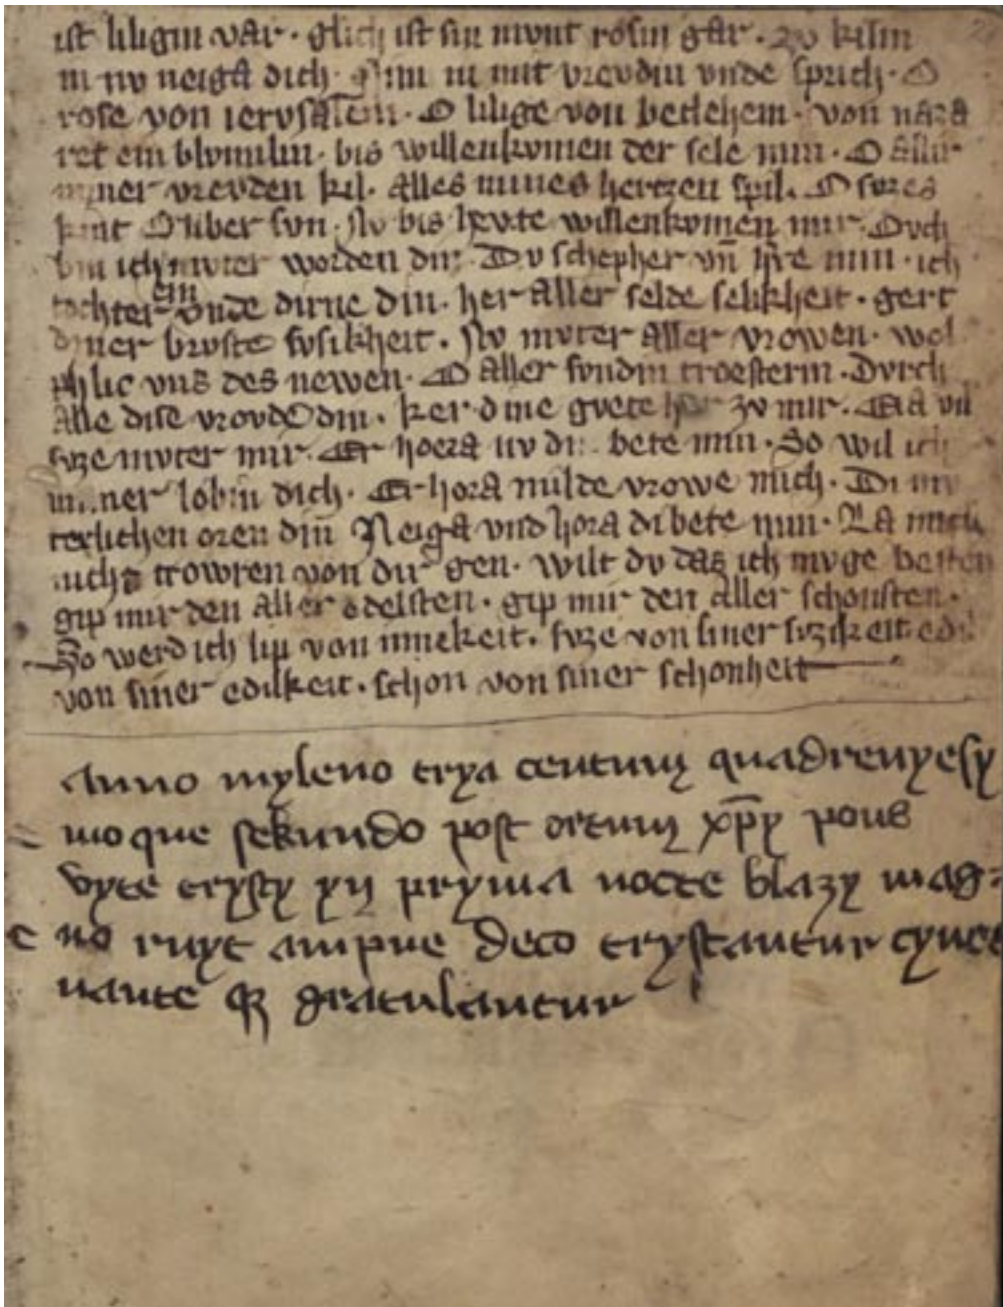 ist liligin var · glich ist sin mvnt rosin gar · zv
nv neiga dich · nim in mit vrevdin vnde sprich · O
rose von iervsalem · O lilige von betlehem · von naza
ret ein blvmilin · bis willenkvmen der sele min · O allir
miner vrevden kil · alles mines hertzen spil · O svzes
kint O liber svn · Nv bis hevte willenkvmen mir · Dvch
bin ich mvter worden din · Dv schepher vn̄ h̄re min · ich
tochter ein vnde dirne din · her aller selde selikheit · gert
diner brvste svsikheit · Nv mvter aller vrowen · wol
vns des newen · O aller svndin troesterin · Dvrch
alle dise vrovde din · ker dine gvete her zv mir · vil
svze mvter mir · Er hoera nv di bete min · So wil ich
immer lobin dich · Er hora milde vrowe mich · Di mv
terlichen oren din̄ Neiga vnd hora di bete min · La mich
nicht trowren von dir gen · wilt dv das ich mvge
gip mir den aller edelsten · gip mir den aller schonsten ·
So werd ich lip von minekeit · svze von siner svzikeit
von siner edilkeit · schon von siner schonheit
Anno myleno trya centum quadrenyesy
mo que sekundo post ortum xp̄y pons
vyte trysty pryma nocte blazy mag=
no ruyt ampne deco trystantur cyuet
nante gratulantur